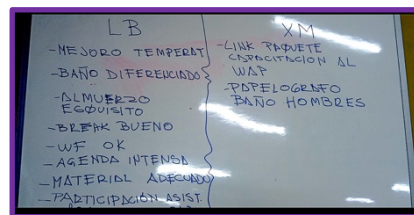 LB
- MEJORO TEMPERAT
- BAÑO DIFERENCIADOS
- ALMUERZO
EGQUISITO
- BREAK BUENO
- WF OK
- AGENDA INTENSA
- MATERIAL ADECUADO
- PARTICIPACIÓN ASIST.
XM
- LINK PAQUETE
CAPACITACION AL
WAP
- PAPELOGRAFO
BAÑO HOMBRES